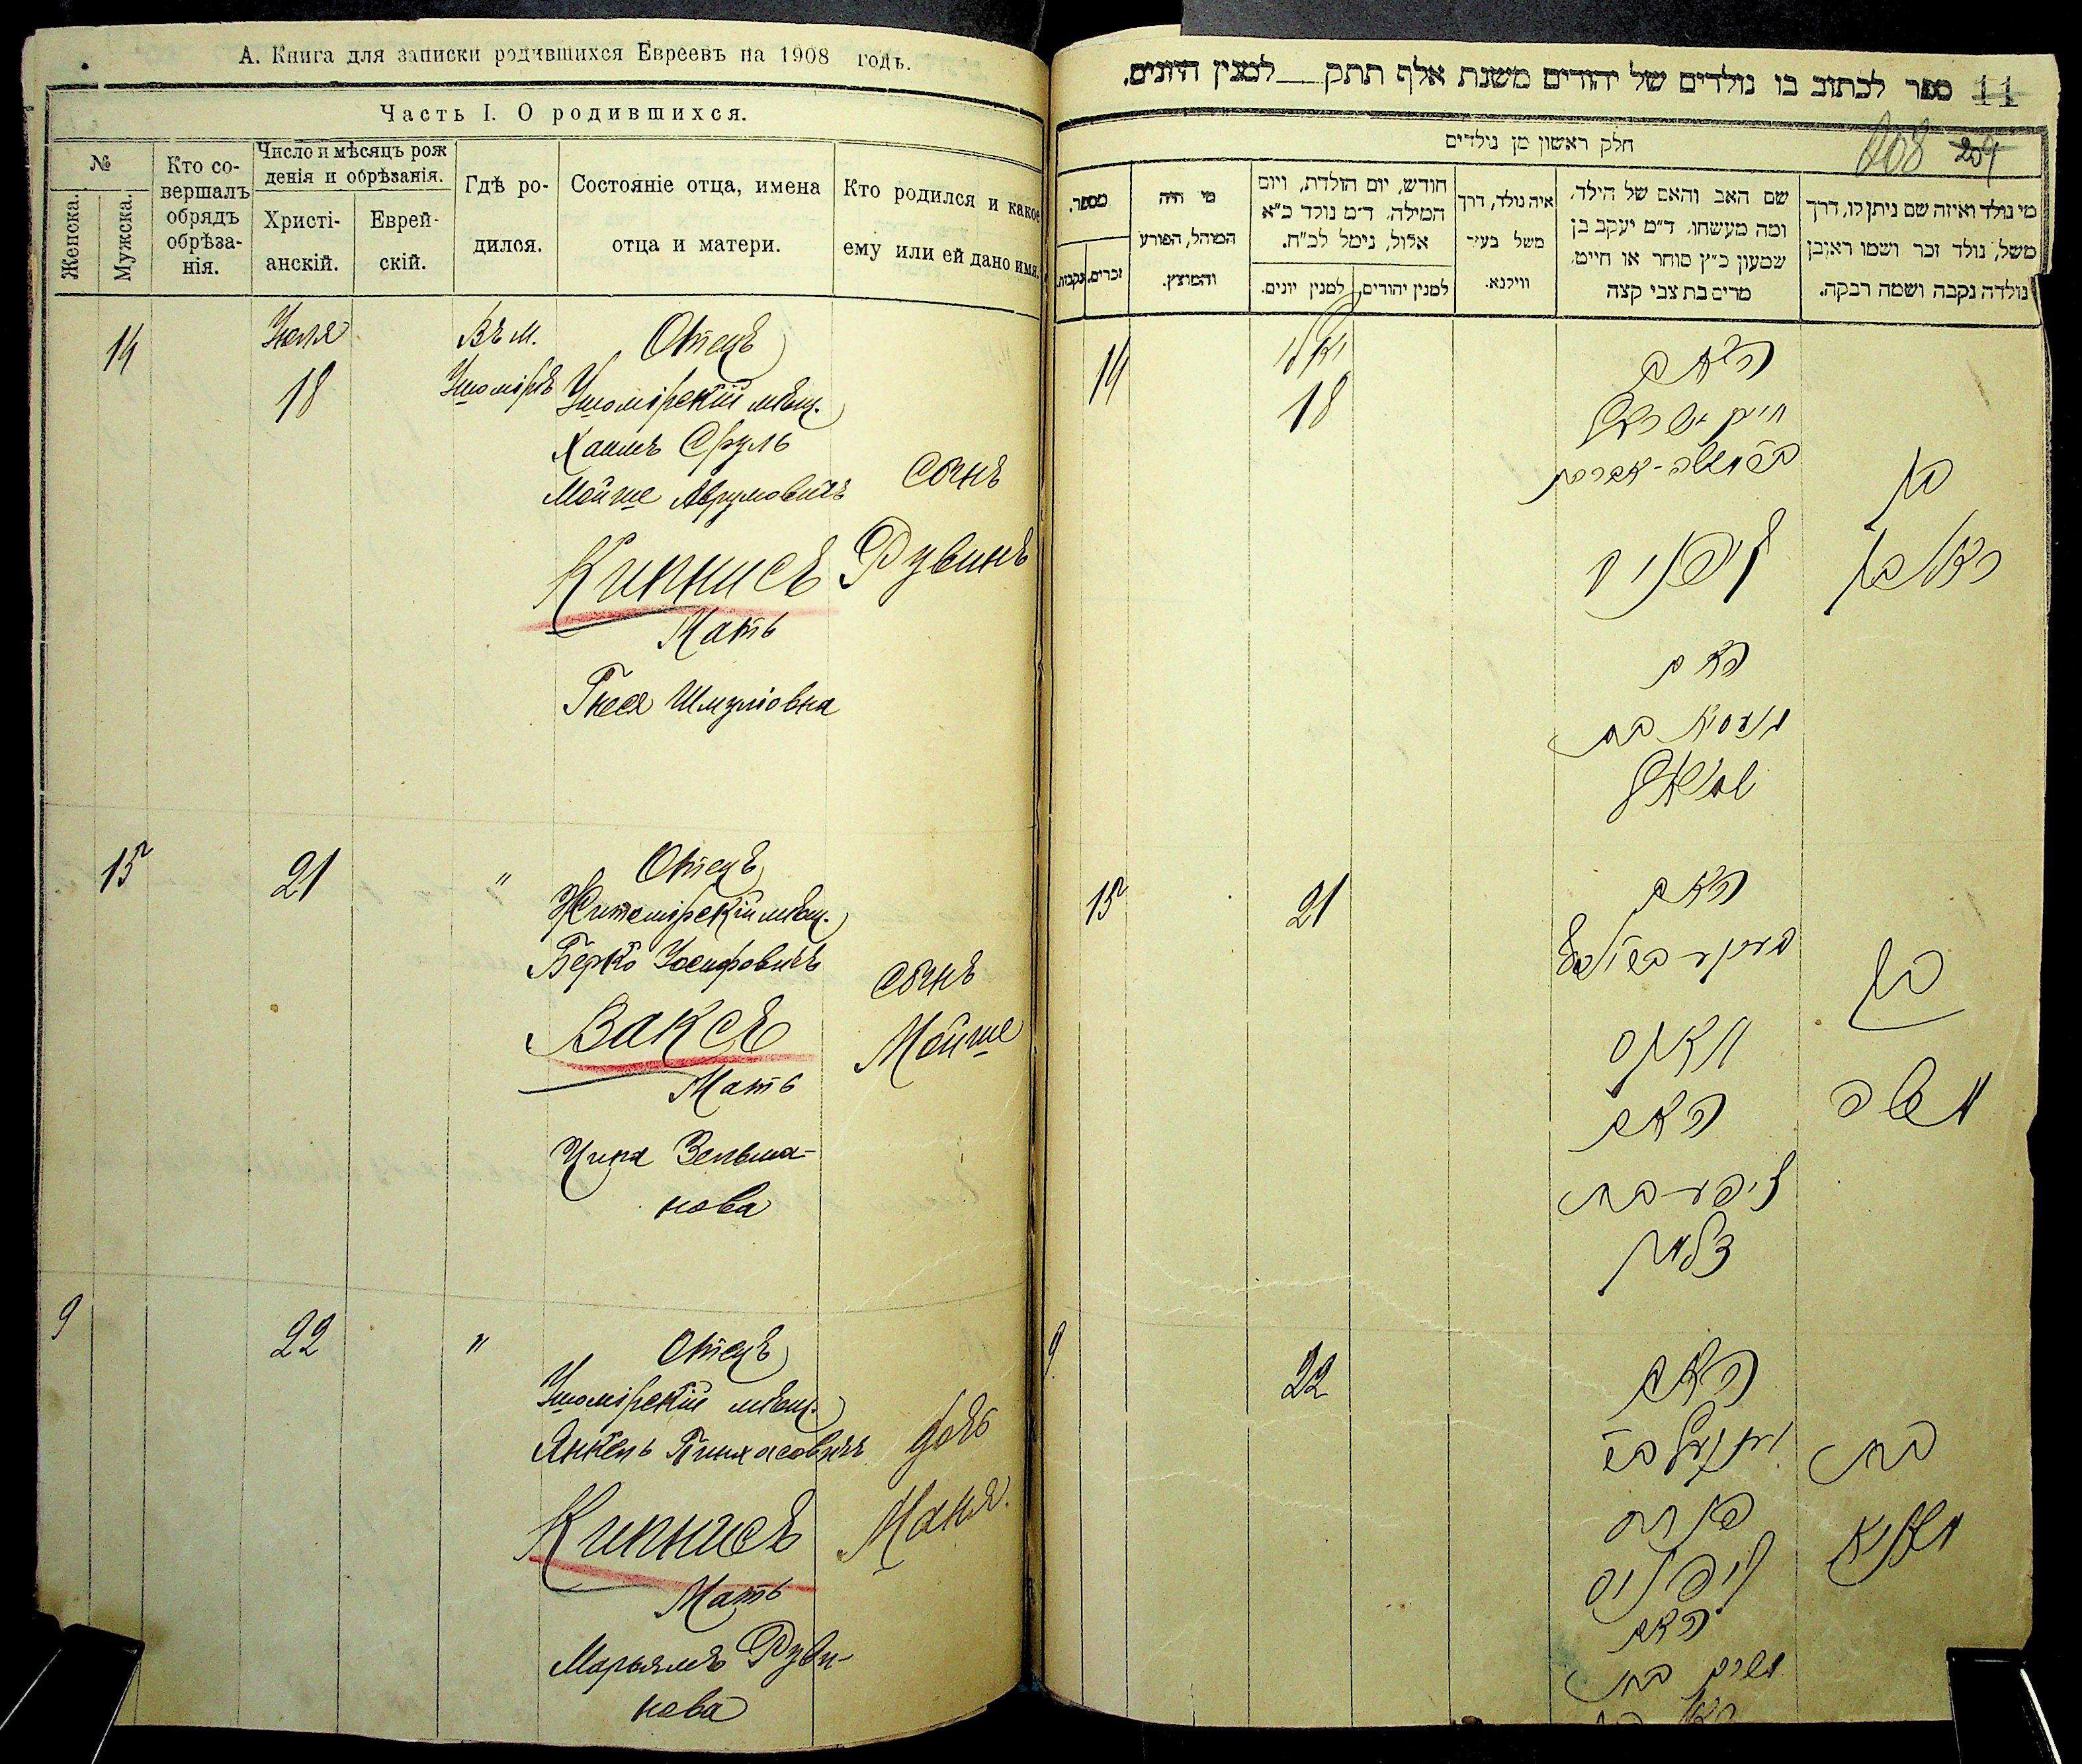 А. Книга для записки родившихся Евреевъ на 1908 годъ.
Часть I. О родившихся.
№
Женска.
Мужска.
Кто со-
вершалъ
обрядъ
обрѣза-
нія.
Число и мѣсяцъ рож
денія и обрѣзанія.
Христі-
анскій.
Еврей-
скій.
Гдѣ ро-
дился.
Состояніе отца, имена
отца и матери.
Кто родился и какое
ему или ей дано имя.
14
Июля
18
Въ м.
Ушомірѣ
Отецъ
Ушомірскій мѣщ.
Хаимъ Сруль
Мойше Аврумовичъ
Кипнисъ
Мать
Гнеся Шмуліовна
Сынъ
Рувинъ
15
21
"
Отецъ
Житомірскій мѣщ.
Берко Іосифовичъ
Ваксъ
Мать
Ципа Зельма-
нова
Сынъ
Мойше
9
22
"
Отецъ
Ушомірскій мѣщ.
Янкель Пинхасовичъ
Кипнисъ
Мать
Марьямъ Руви-
нова
дочь
Маня.
11 ספר לכתוב בו נולדים של יהודים משנת אלף תתק למנין היונים.
208 204
חלק ראשון מן נולדים
מי נולד ואיזה שם ניתן לו, דרך
משל, נולד זכר ושמו ראובן
נולדה נקבה ושמה רבקה.
שם האב והאם של הילד,
ומה מעשהו, ד״מ יעקב בן
שמעון כ״ץ סוחר או חייט,
מרים בת צבי קצה
איה נולד, דרך
משל בעיר
ווילנא.
חודש, יום הולדת, ויום
המילה, ד״מ נולד כ״א
אלול, נימל לכ״ח.
למנין יהודים
למנין יונים.
מי היה
המוהל, הפורע
והמוצץ.
מספר.
זכרים.
נקבות.
14
יולי
18
האב
חיים ישראל
קיפניס
האם
בת
שמואל
בן
ראובן
15
21
האב
וואקס
האם
ציפע בת
זלמן
בן
משה
9
22
האב
יאנקעל ב״ר
פנחס
קיפניס
האם
מרים בת
בת
מאניא